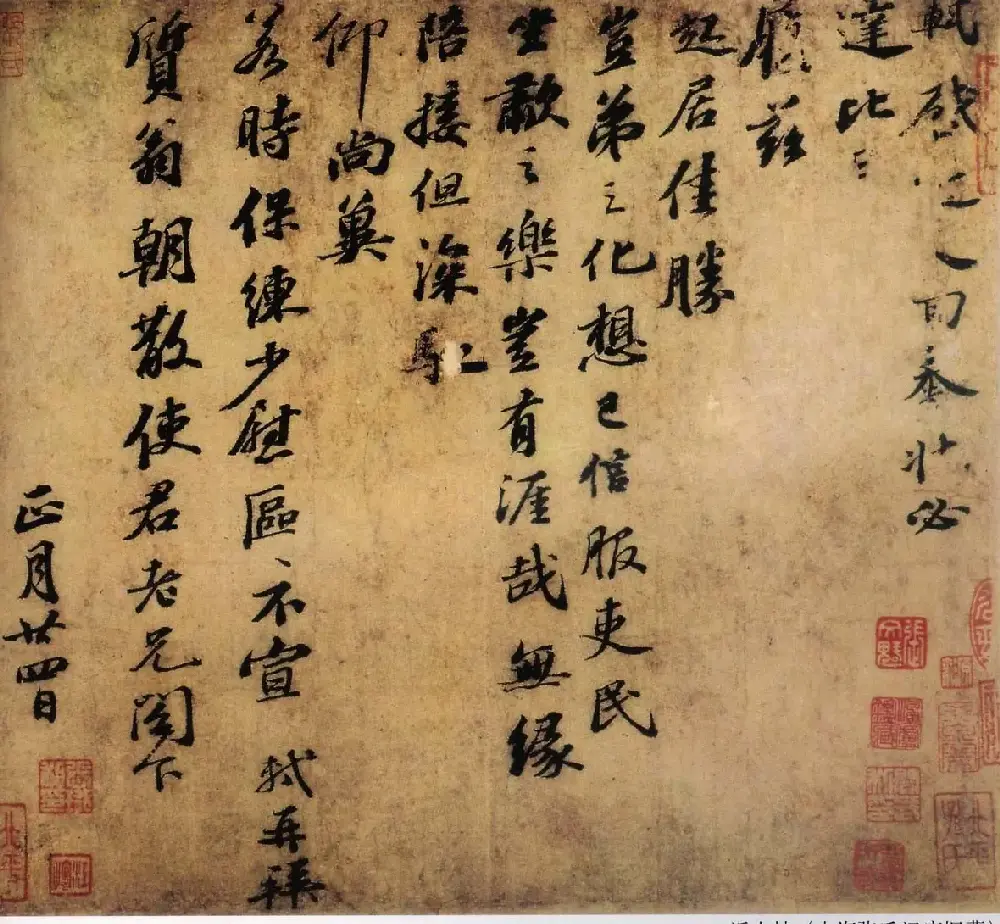 軾啓近人回奉狀必
達比
履茲
起居佳勝
豈弟之化想已信服吏民
坐歗之樂豈有涯哉無緣
陪接但深馳
仰尚冀
若時保練少慰區、不宣 軾再拜
質翁朝散使君老兄閣下
正月廿四日